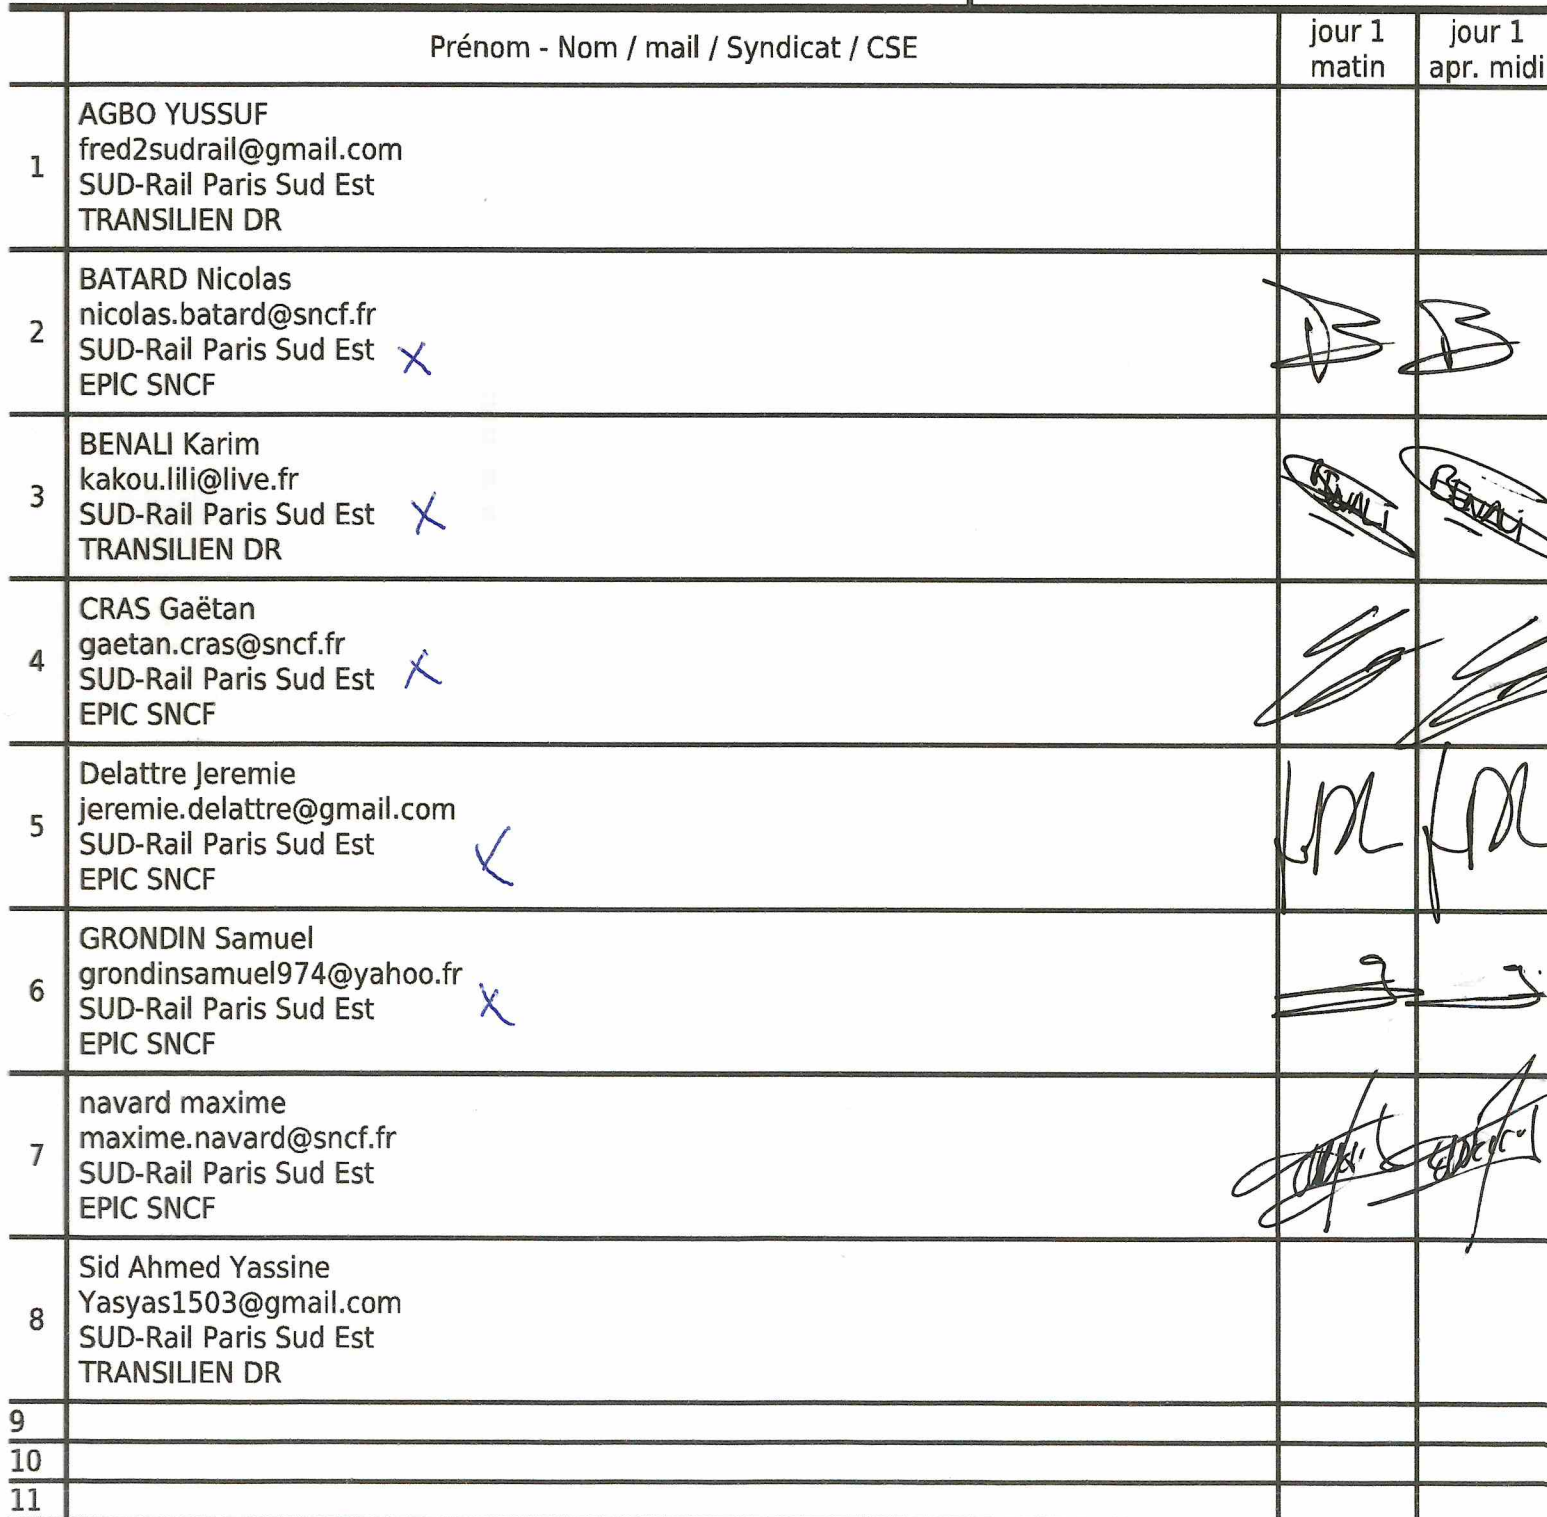 Prénom - Nom / mail / Syndicat / CSE
jour 1
matin
jour 1
apr. midi
1
AGBO YUSSUF
fred2sudrail@gmail.com
SUD-Rail Paris Sud Est
TRANSILIEN DR
2
BATARD Nicolas
nicolas.batard@sncf.fr
SUD-Rail Paris Sud Est X
EPIC SNCF
3
BENALI Karim
kakou.lili@live.fr
SUD-Rail Paris Sud Est X
TRANSILIEN DR
BENALI
4
CRAS Gaëtan
gaetan.cras@sncf.fr
SUD-Rail Paris Sud Est X
EPIC SNCF
5
Delattre Jeremie
jeremie.delattre@gmail.com
SUD-Rail Paris Sud Est X
EPIC SNCF
6
GRONDIN Samuel
grondinsamuel974@yahoo.fr
SUD-Rail Paris Sud Est X
EPIC SNCF
7
navard maxime
maxime.navard@sncf.fr
SUD-Rail Paris Sud Est
EPIC SNCF
8
Sid Ahmed Yassine
Yasyas1503@gmail.com
SUD-Rail Paris Sud Est
TRANSILIEN DR
9
10
11